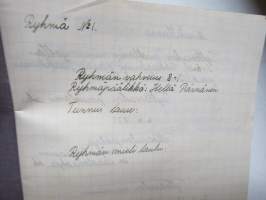 Ryhmä №1.
Ryhmän vahvuus 8-1
Ryhmäpäälikkö: Hellä Närvänen
Tunnus lause:
Ryhmän mieli laulu